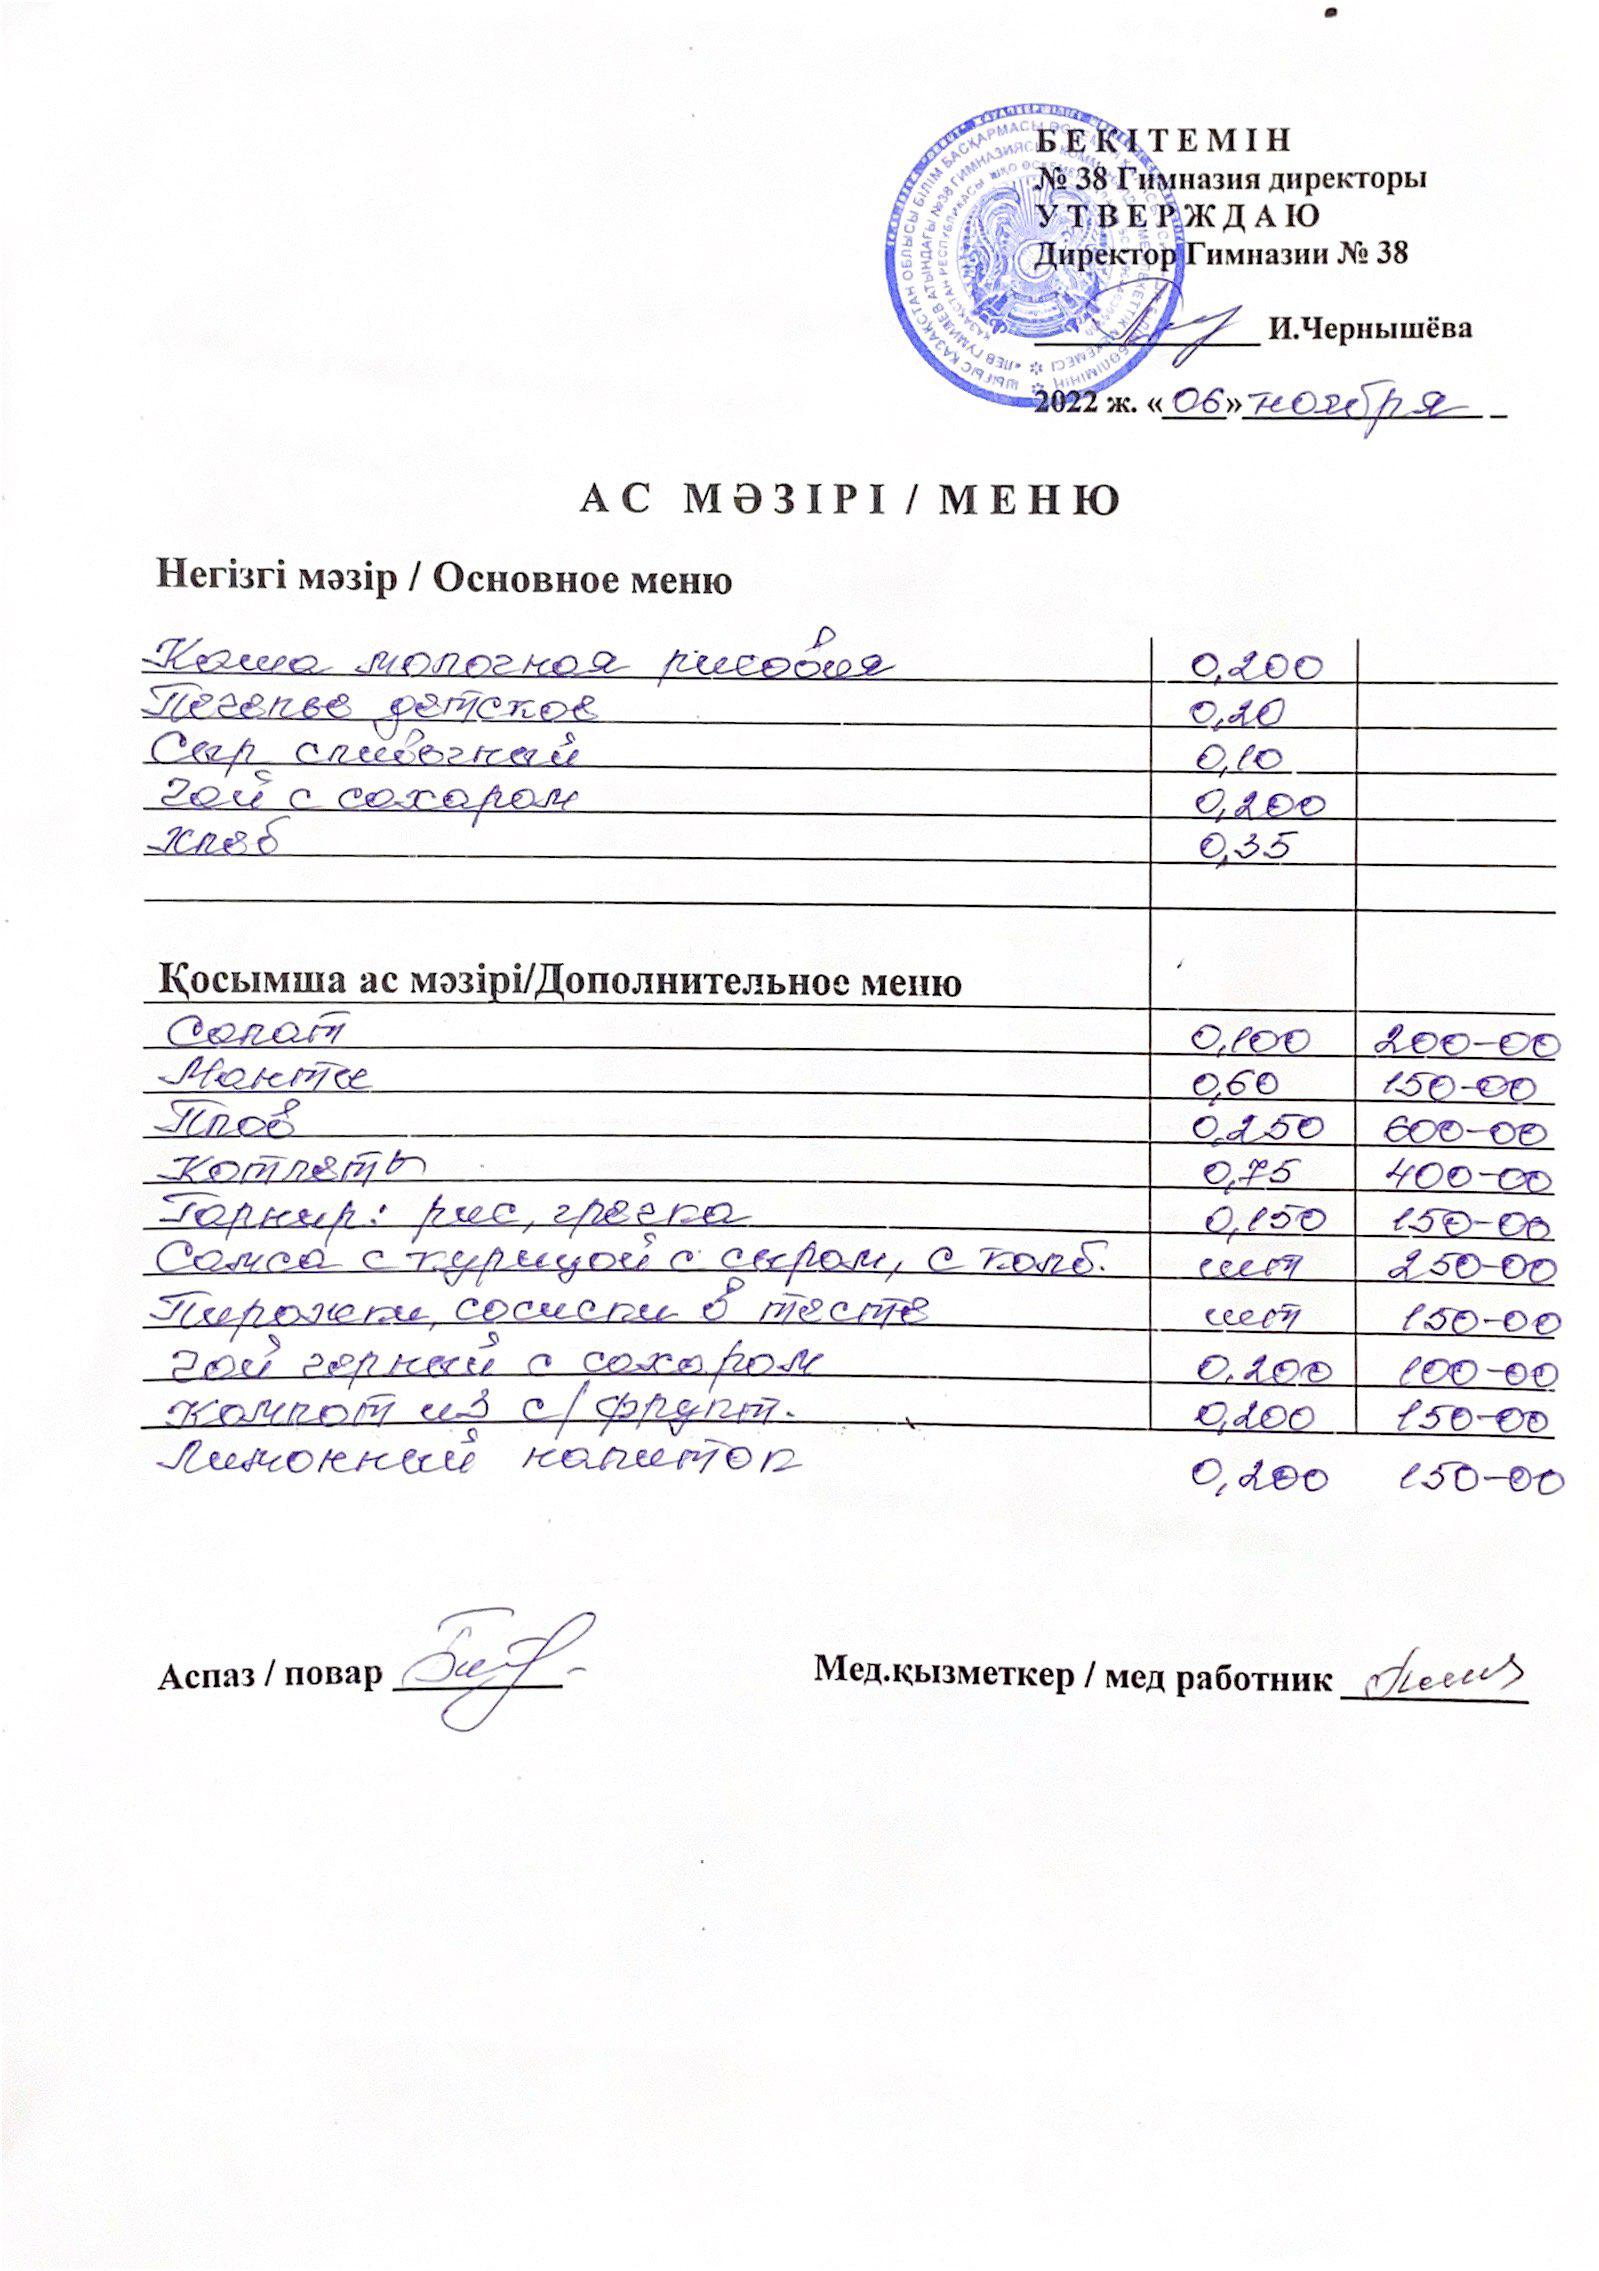 БЕКІТЕМІН
№ 38 Гимназия директоры
УТВЕРЖДАЮ
Директор Гимназии № 38
И.Чернышёва
2022 ж. «06» ноября
АС МӘЗІРІ / МЕНЮ
Негізгі мәзір / Основное меню
Каша молочная рисовая 0,200
Печенье детское 0,20
Сыр сливочный 0,10
Чай с сахаром 0,200
Хлеб 0,35
Қосымша ас мәзірі/Дополнительное меню
Салат 0,100 200-00
Манты 0,60 150-00
Плов 0,250 600-00
Котлеты 0,75 400-00
Гарнир: рис, гречка 0,150 150-00
Самса с курицой с сыром, с колб. шт 250-00
Пирожки, сосиски в тесте шт 150-00
Чай черный с сахаром 0.200 100-00
Компот из с/фрукт. 0,200 150-00
Лимонный напиток 0,200 150-00
Аспаз / повар Мед.қызметкер / мед работник